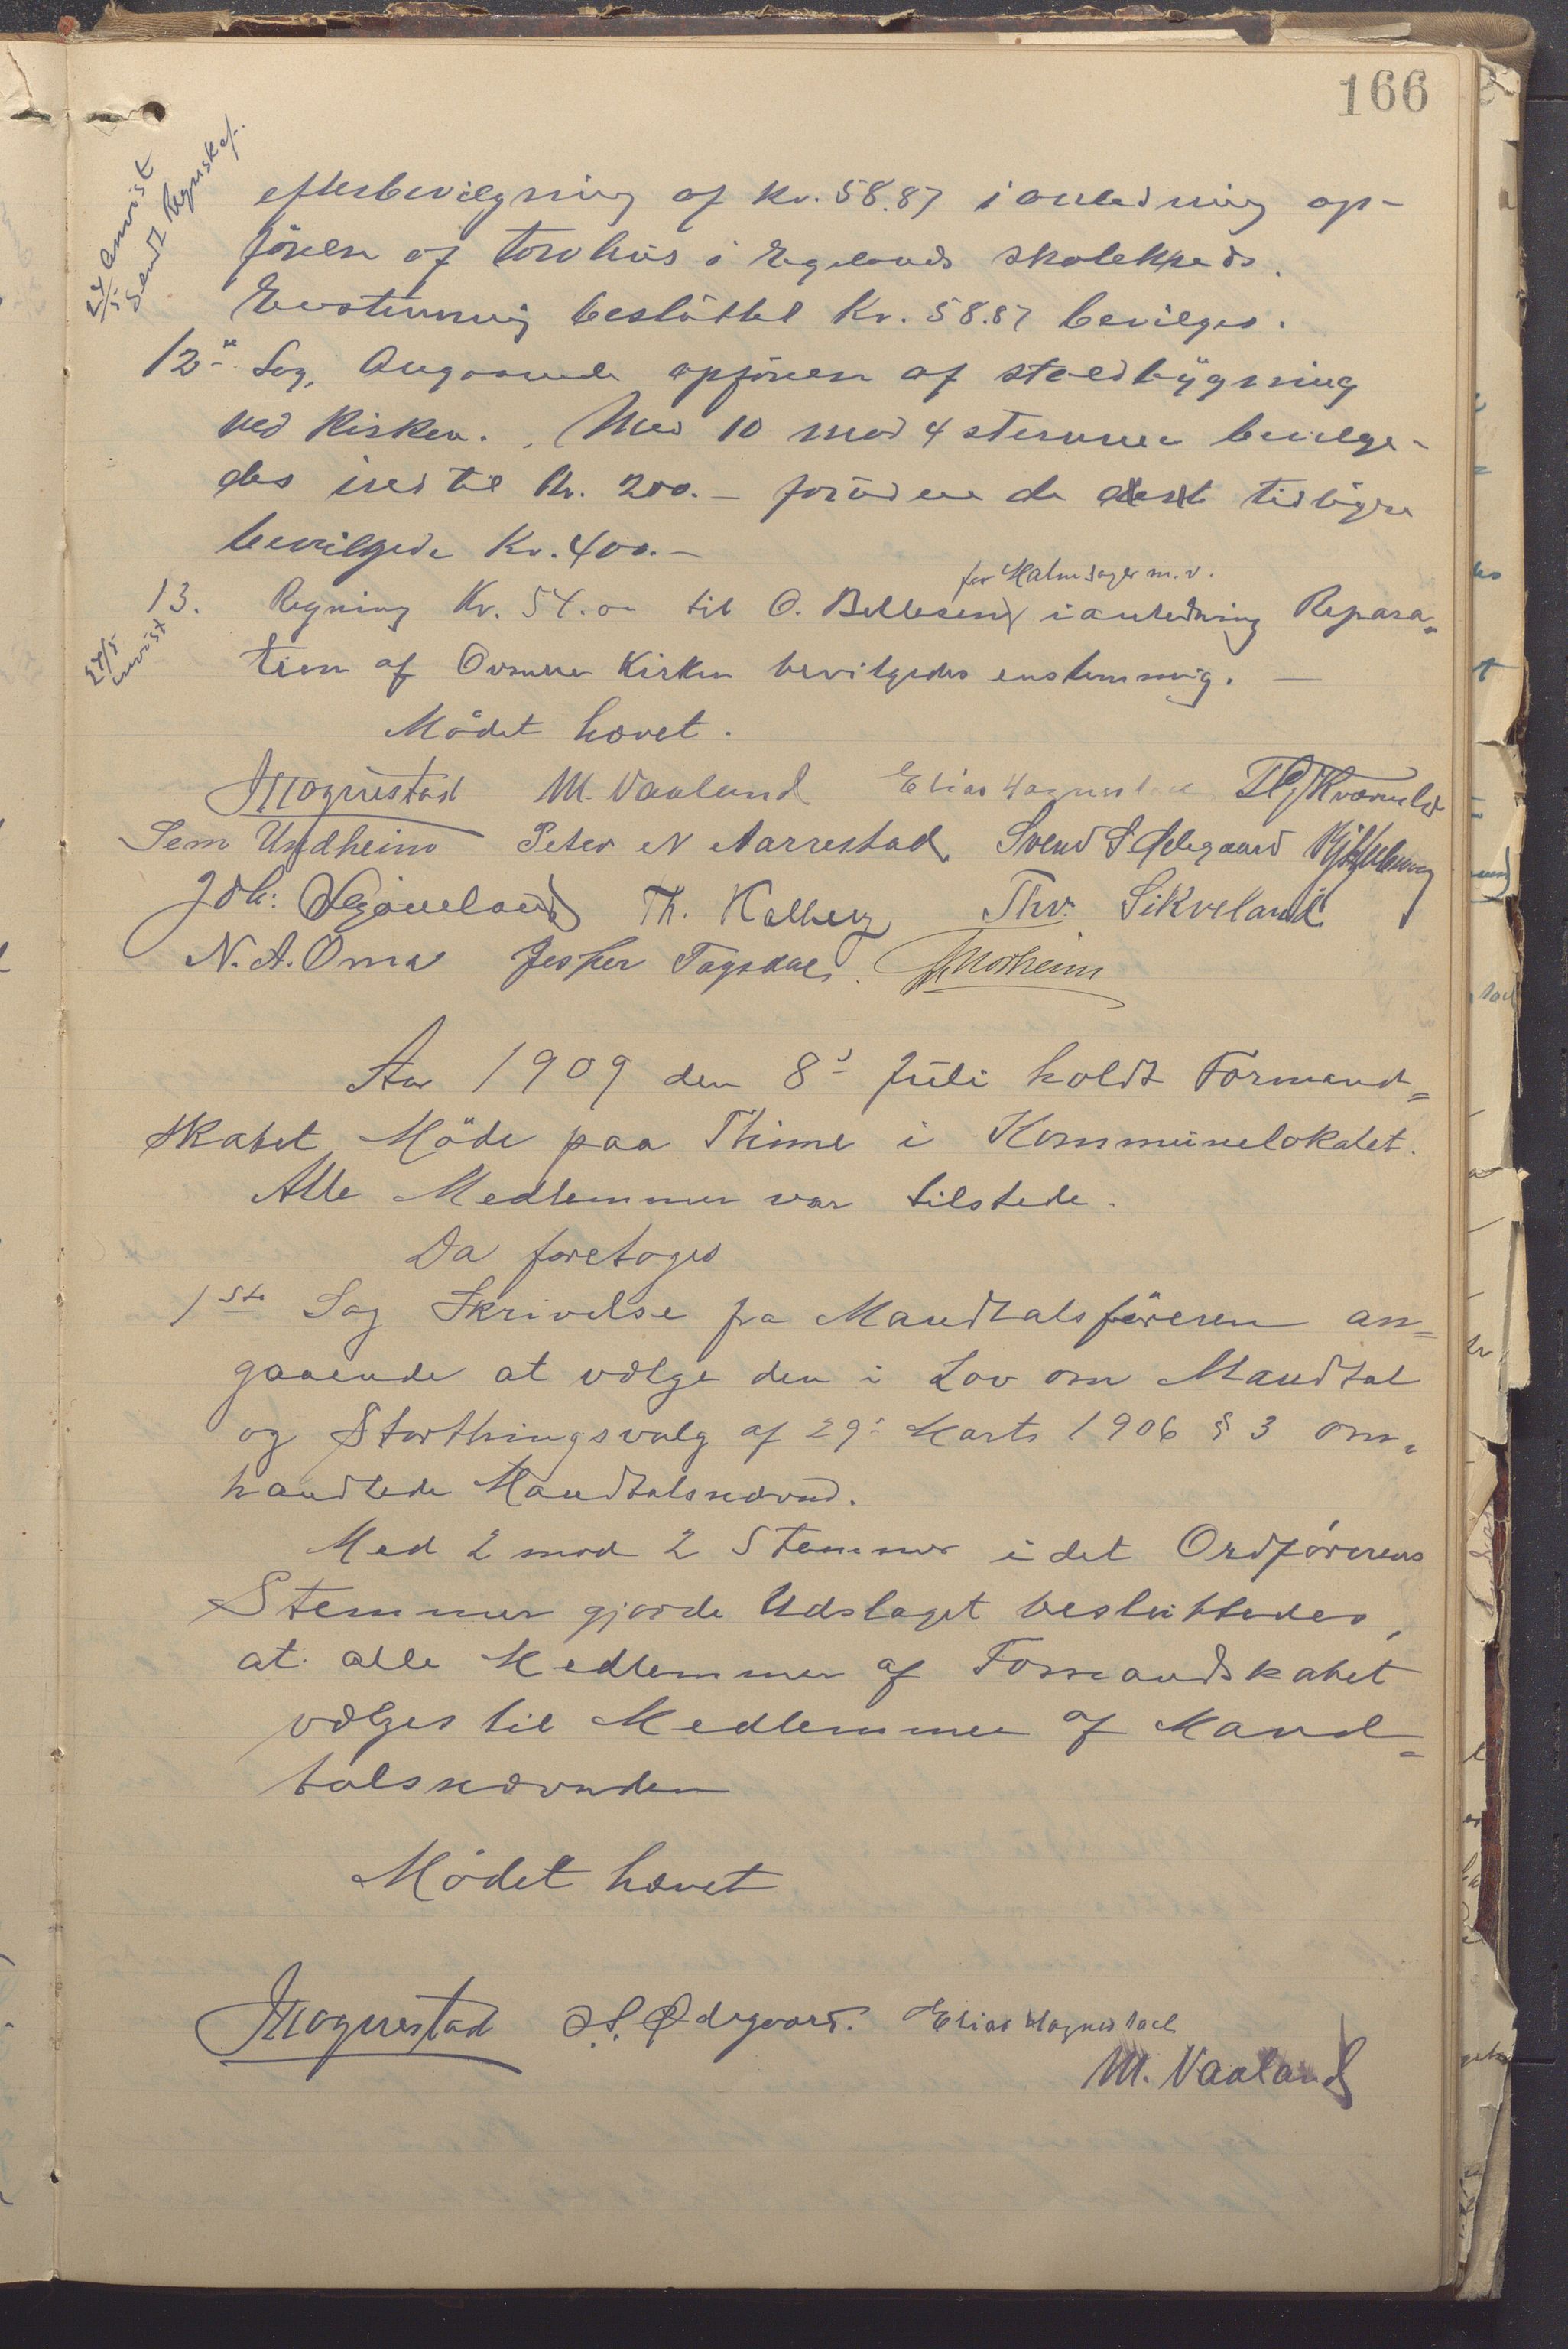 166
24/5 anvist
Sendt Regnskf.
efterbevilgning af Kr. 58.87 i anledning op-
förelse af torvhus i Egelands skolekreds.
Enstemmig besluttet Kr. 58.87 bevilges.
12te Sag, Angaaende opförelse af staldbygning
ved Kirken. Med 10 mod 4 stemmer bevilge-
des indtil Kr. 200.- foruden de tidligre
bevilgede Kr. 400.-
for Malm sager m.v.
13. Regning Kr. 54.00 til O. Bellesen i anledning Repara=
24/5 anvist
tion af Kirken bevilgedes enstemmig. -
Mödet hævet.
Mognestad M. Vaaland Elias Hognestad Kværneland
Sem Undheim Peter N Aarrestad Svend S Ødegaard
Joh: Th. Kalberg Thv. Sikveland
N. A. Oma Jesper Tagsdal Norheim
Aar 1909 den 8de Juli holdt Formand=
skabet Möde paa Thime i Kommunelokalet.
Alle Medlemmer var tilstede.
Da foretoges
1ste Sag Skrivelse fra Mandtalsföreren an=
gaaende at vælge den i Lov om Mandtal
og Storthingsvalg af 29: Marts 1906 § 3 om=
handlede Mandtalsnævnd.
Med 2 mod 2 Stemmer idet Ordförerens
Stemmer gjorde Udslaget besluttedes,
at alle Medlemmer af Formandskabet
vælges til Medlemmer af Mand=
talsnævnden
Mödet hævet
Mognestad S. S. Ødegaard. Elias Hognestad
M. Vaaland